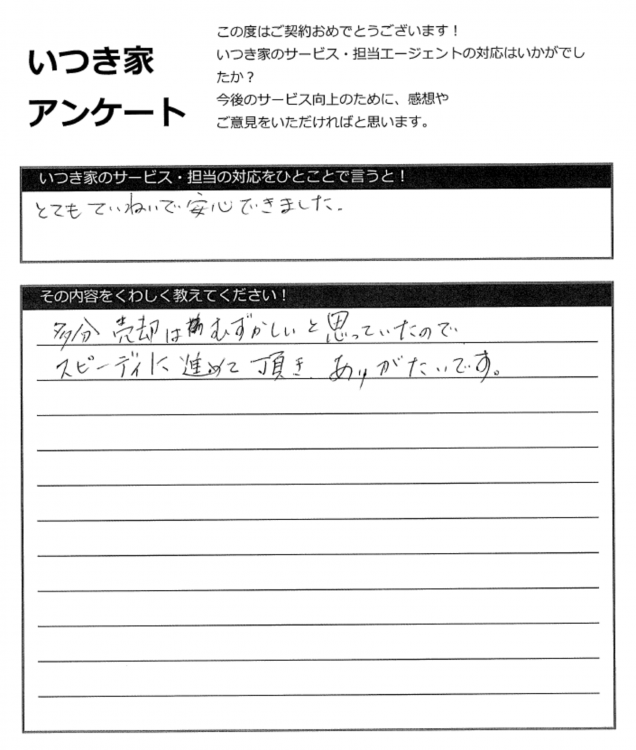 いつき家
アンケート
この度はご契約おめでとうございます！
いつき家のサービス・担当エージェントの対応はいかがでし
たか？
今後のサービス向上のために、感想や
ご意見をいただければと思います。
いつき家のサービス・担当の対応をひとことで言うと！
とてもていねいで安心できました。
その内容をくわしく教えてください！
多分売却はむずかしいと思っていたので
スピーディに進めて頂きありがたいです。